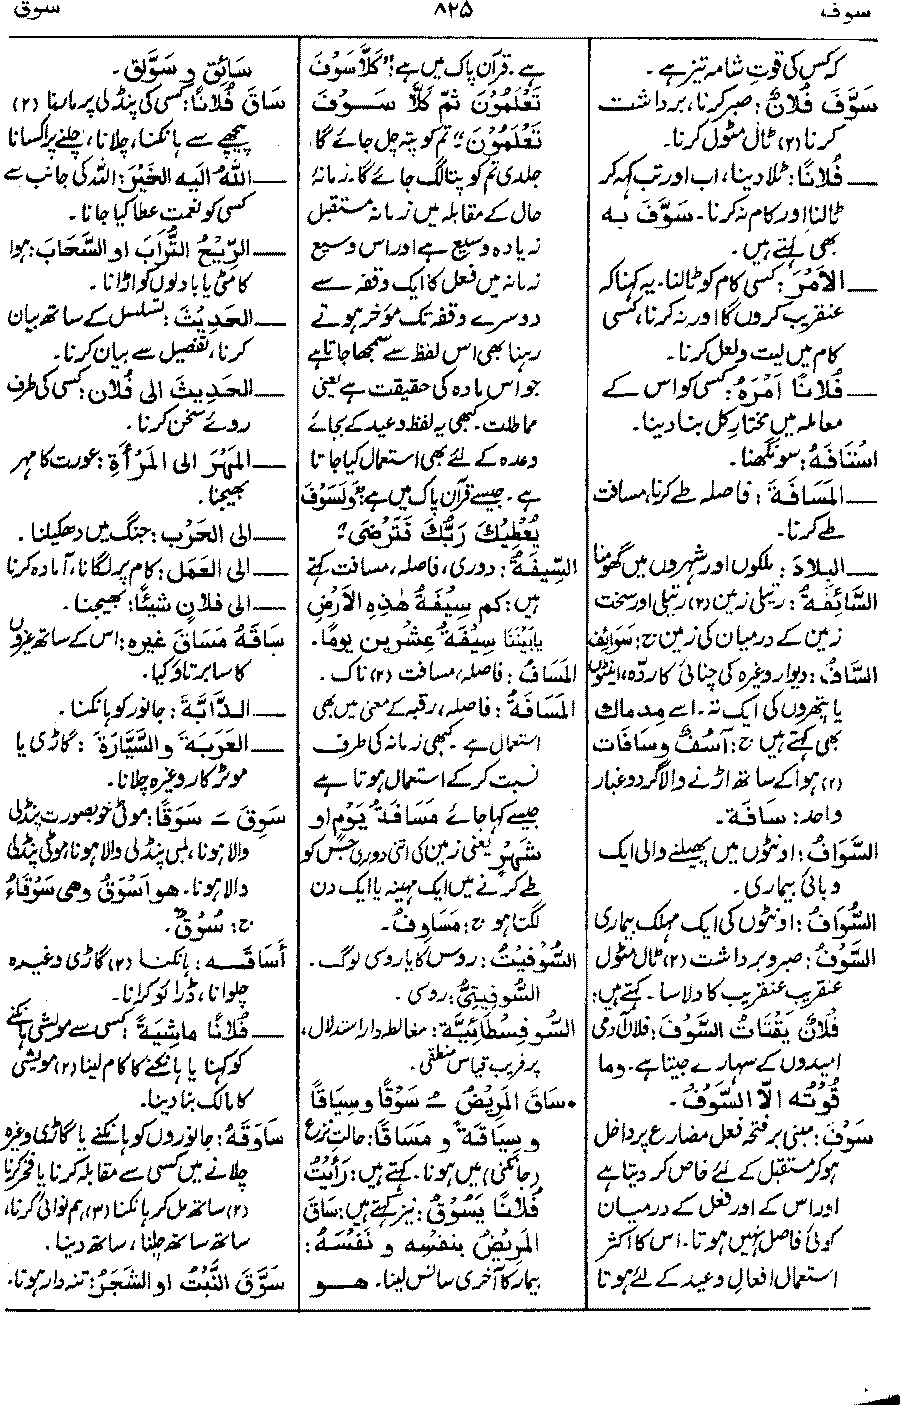 سوف
۸۲۵
سوق
کہ کس کی قوتِ شامہ تیز ہے۔
سَوَّفَ فُلَانٌ: صبر کرنا، برداشت
کرنا (۲) ٹال مٹول کرنا۔
ــــ فُلَانًا: ٹلا دینا، اب اور تب کہہ کر
ٹالنا اور کام نہ کرنا۔ سَوَّفَ بِه
بھی کہتے ہیں۔
ــــ الأمْرَ: کسی کام کو ٹالنا۔ یہ کہنا کہ
عنقریب کروں گا اور نہ کرنا، کسی
کام میں لیت و لعل کرنا۔
ــــ فُلَانًا أمْرَهُ: کسی کو اس کے
معاملہ میں مختارِ کل بنا دینا۔
اسْتَافَهُ: سونگھنا۔
ــــ المَسَافَةَ: فاصلہ طے کرنا، مسافت
طے کرنا۔
ــــ البلادَ: ملکوں اور شہروں میں گھومنا
السَّائِفَةُ: رتیلی زمین (۲) رتیلی اور سخت
زمین کے درمیان کی زمین ج: سَوَائِف
السَّافُ: دیوار وغیرہ کی چنائی کا ردّہ، اینٹوں
یا پتھروں کی ایک تہ۔ اسے مِدماك
بھی کہتے ہیں ج: آسُفٌ وسَافَات
(۲) ہوا کے ساتھ اڑنے والا گرد و غبار
واحد: سَافَة۔
السَّوَافُ: اونٹوں میں پھیلنے والی ایک
وبائی بیماری۔
السُّوَافُ: اونٹوں کی ایک مہلک بیماری
السَّوْفُ: صبر و برداشت (۲) ٹال مٹول
عنقریب عنقریب کا دلاسا۔ کہتے ہیں:
فُلَانٌ يَقْتَاتُ السَّوْفَ: فلاں آدمی
امیدوں کے سہارے جیتا ہے۔ وما
قُوتُه الّا السَّوْفُ۔
سَوْفَ: مبنی بر فتحہ فعل مضارع پر داخل
ہو کر مستقبل کے لئے خاص کر دیتا ہے
اور اس کے اور فعل کے درمیان
کوئی فاصل نہیں ہوتا۔ اس کا اکثر
استعمال افعالِ وعید کے لئے ہوتا
ہے۔ قرآن پاک میں ہے: "كَلَّا سَوْفَ
تَعْلَمُونَ ثُمّ كَلَّا سَوْفَ
تَعْلَمُونَ" تم کو پتہ چل جائے گا
جلدی تم کو پتا لگ جائے گا۔ زمانہ
حال کے مقابلہ میں زمانہ مستقبل
زیادہ وسیع ہے اور اس وسیع
زمانہ میں فعل کا ایک وقفہ سے
دوسرے وقفہ تک مؤخر ہوتے
رہنا بھی اس لفظ سے سمجھا جاتا ہے
جو اس مادہ کی حقیقت ہے یعنی
مماطلت۔ کبھی یہ لفظ وعید کے بجائے
وعدہ کے لئے بھی استعمال کیا جاتا
ہے۔ جیسے قرآن پاک میں ہے: "وَلَسَوْفَ
يُعْطِيكَ رَبُّكَ فَتَرْضَى"
السِّيفَةُ: دوری، فاصلہ، مسافت کہتے
ہیں: كم سِيفَةُ هٰذِهِ الأرْضِ
یا بَيْنَنَا سِيفَةُ عِشْرِين يَومًا۔
المَسَافُ: فاصلہ، مسافت (۲) ناک۔
المَسَافَةُ: فاصلہ، رقبہ کے معنی میں بھی
استعمال ہے۔ کبھی زمانہ کی طرف
نسبت کر کے استعمال ہوتا ہے
جیسے کہا جائے مَسَافَةُ يَوْمٍ او
شَهْرٍ یعنی زمین کی اتنی دوری جس کو
طے کرنے میں ایک مہینہ یا ایک دن
لگتا ہو ج: مَسَاوِفُ۔
السُّوْفِيَتُ: روس کا یا روسی لوگ۔
السُّوفِيتيُّ: روسی۔
السُّوفِسْطَائِيَّة: مغالطہ دار استدلال،
پر فریب قیاس منطقی۔
•سَاقَ المَرِيْضُ ـُ سَوْقًا وسِيَاقًا
و سِيَاقَةً و مَسَاقًا: حالتِ نزع
(جانکنی) میں ہونا۔ کہتے ہیں: رَأَيْتُ
فُلَانًا يَسُوْقُ: نیز کہتے ہیں: سَاقَ
المَرِيْضُ بِنَفْسِه و نَفْسَهُ:
بیمار کا آخری سانس لینا۔ هُو
سَائِق و سَوَّاق۔
سَاقَ فُلَانًا: کسی کی پنڈلی پر مارنا (۲)
پیچھے سے ہانکنا، چلانا، چلنے پر اکسانا
ــــ اللّٰهُ اليه الخَيْرَ: اللہ کی جانب سے
کسی کو نعمت عطا کیا جانا۔
ــــ الرِّيْحُ التُّرَابَ او السَّحَابَ: ہوا
کا مٹی یا بادلوں کو اڑانا۔
ــــ الحَدِيثَ: تسلسل کے ساتھ بیان
کرنا، تفصیل سے بیان کرنا۔
ــــ الحَدِيثَ الى فُلَان: کسی کی طرف
روئے سخن کرنا۔
ــــ المَهْرَ الى المَرْأةِ: عورت کا مہر
بھیجنا۔
ــــ الى الحَرْبِ: جنگ میں دھکیلنا۔
ــــ الى العَمَل: کام پر لگانا، آمادہ کرنا
ــــ الى فلانٍ شيئًا: بھیجنا۔
سَاقَهُ مَسَاقَ غيره: اس کے ساتھ غیروں
کا سا برتاؤ کیا۔
ــــ الدَّابَّةَ: جانور کو ہانکنا۔
ــــ العَرَبَةَ والسَّيَّارَةَ: گاڑی یا
موٹر کار وغیرہ چلانا۔
سَوِقَ ـَ سَوَقًا: موٹی خوبصورت پنڈلی
والا ہونا، لمبی پنڈلی والا ہونا، موٹی پنڈلی
والا ہونا۔ هو أسْوَقُ وهى سَوْقَاءُ
ج: سُوْقٌ۔
أسَاقَه: ہانکنا (۲) گاڑی وغیرہ
چلوانا، ڈرائو کرانا۔
ــــ فُلَانًا مَاشِيَةً: کسی سے مویشی ہانکنے
کو کہنا یا ہانکنے کا کام لینا (۲) مویشی
کا مالک بنا دینا۔
سَاوَقَهُ: جانوروں کو ہانکنے یا گاڑی وغیرہ
چلانے میں کسی سے مقابلہ کرنا یا فخر کرنا
(۲) ساتھ مل کر ہانکنا (۳) ہم نوائی کرنا،
ساتھ ساتھ چلنا، ساتھ دینا۔
سَوَّقَ النَّبْتُ او الشَّجَرُ: تنہ دار ہونا۔